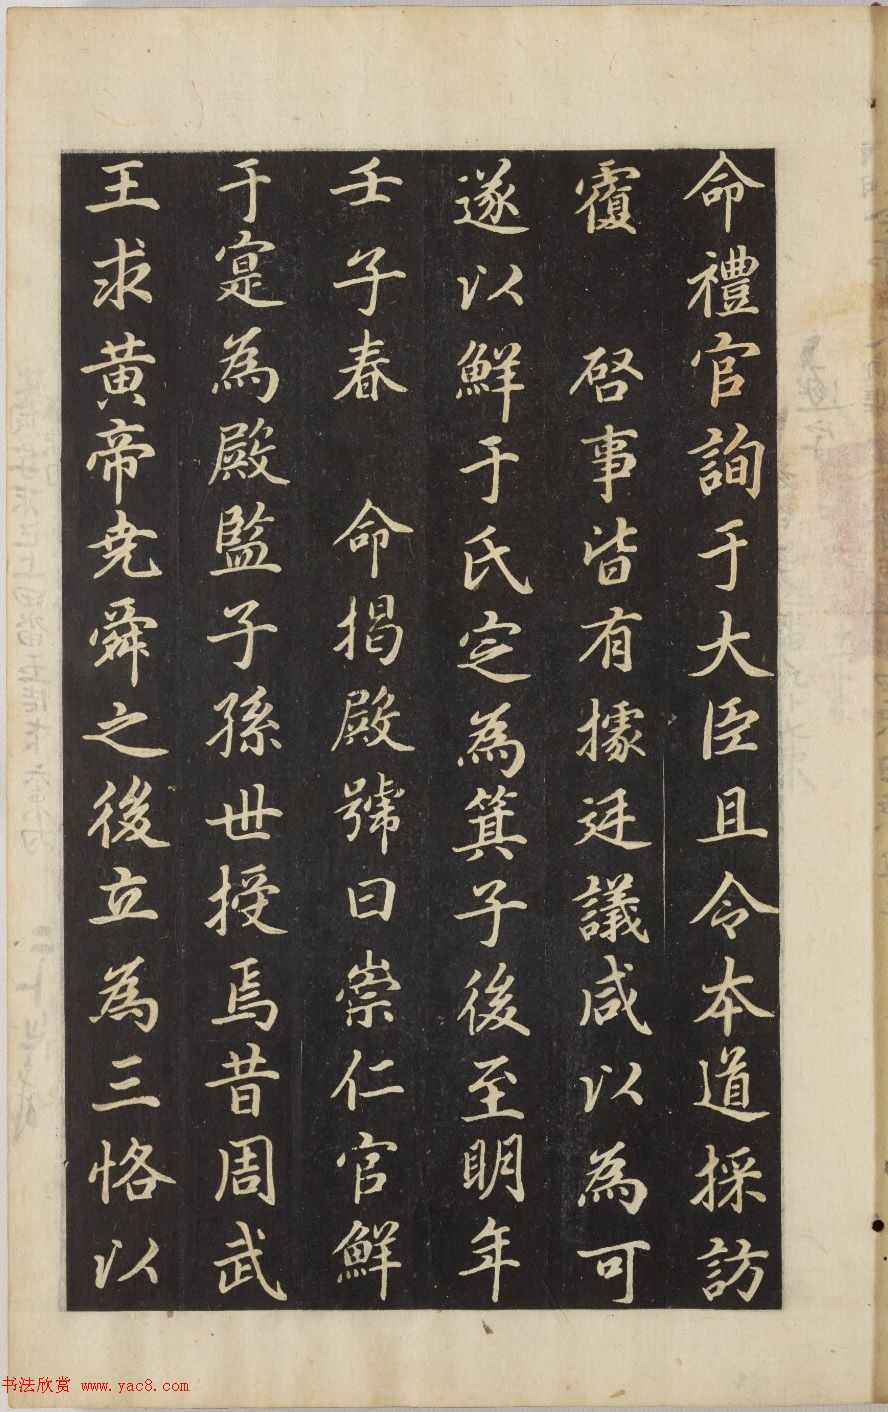 命禮官詢于大臣且令本道採訪
覆　啓事皆有據廷議咸以為可
遂以鮮于氏定為箕子後至明年
壬子春　命揭殿號曰崇仁官鮮
于寔為殿監子孫世授焉昔周武
王求黃帝尭舜之後立為三恪以
书法欣赏 www.yac8.com